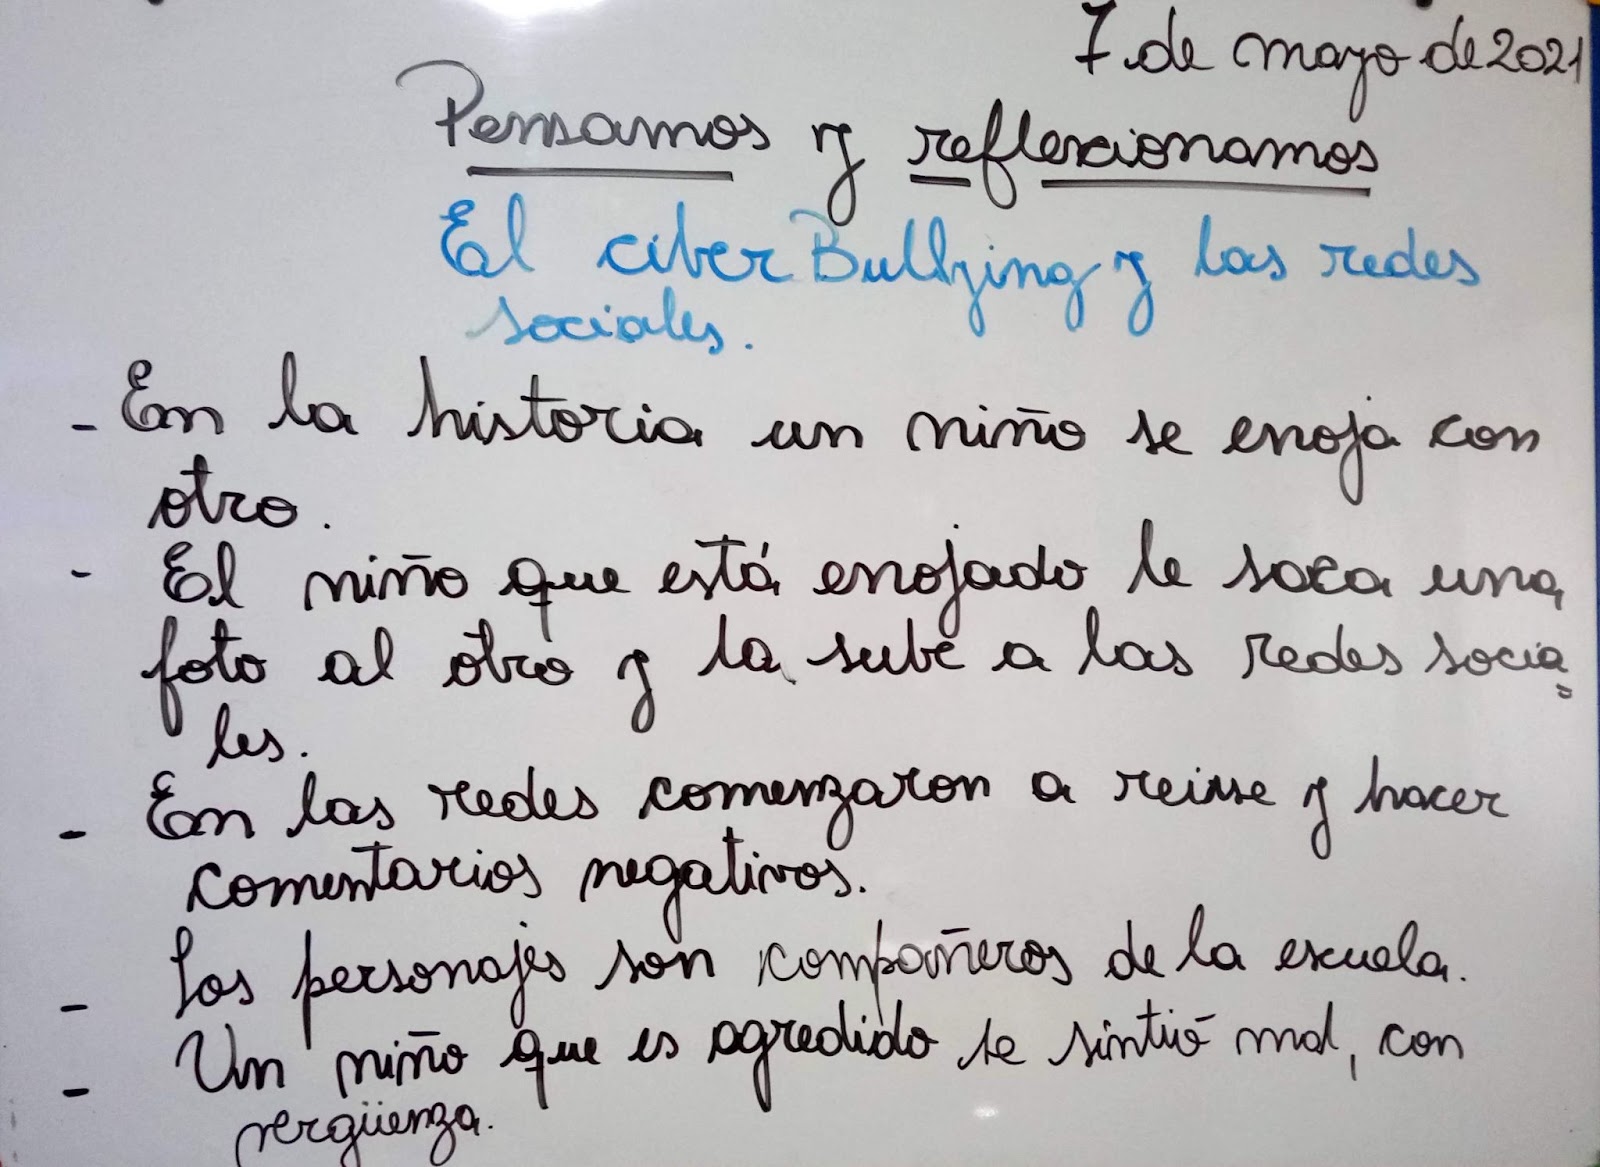 7 de mayo de 2021
Pensamos y reflexionamos
El ciber Bullying y las redes
sociales.
- En la historia un niño se enoja con
otro.
- El niño que está enojado le saca una
foto al otro y la sube a las redes socia=
les.
- En las redes comenzaron a reirse y hacer
comentarios negativos.
- Los personajes son compañeros de la escuela.
- Un niño que es agredido se sintió mal, con
vergüenza.